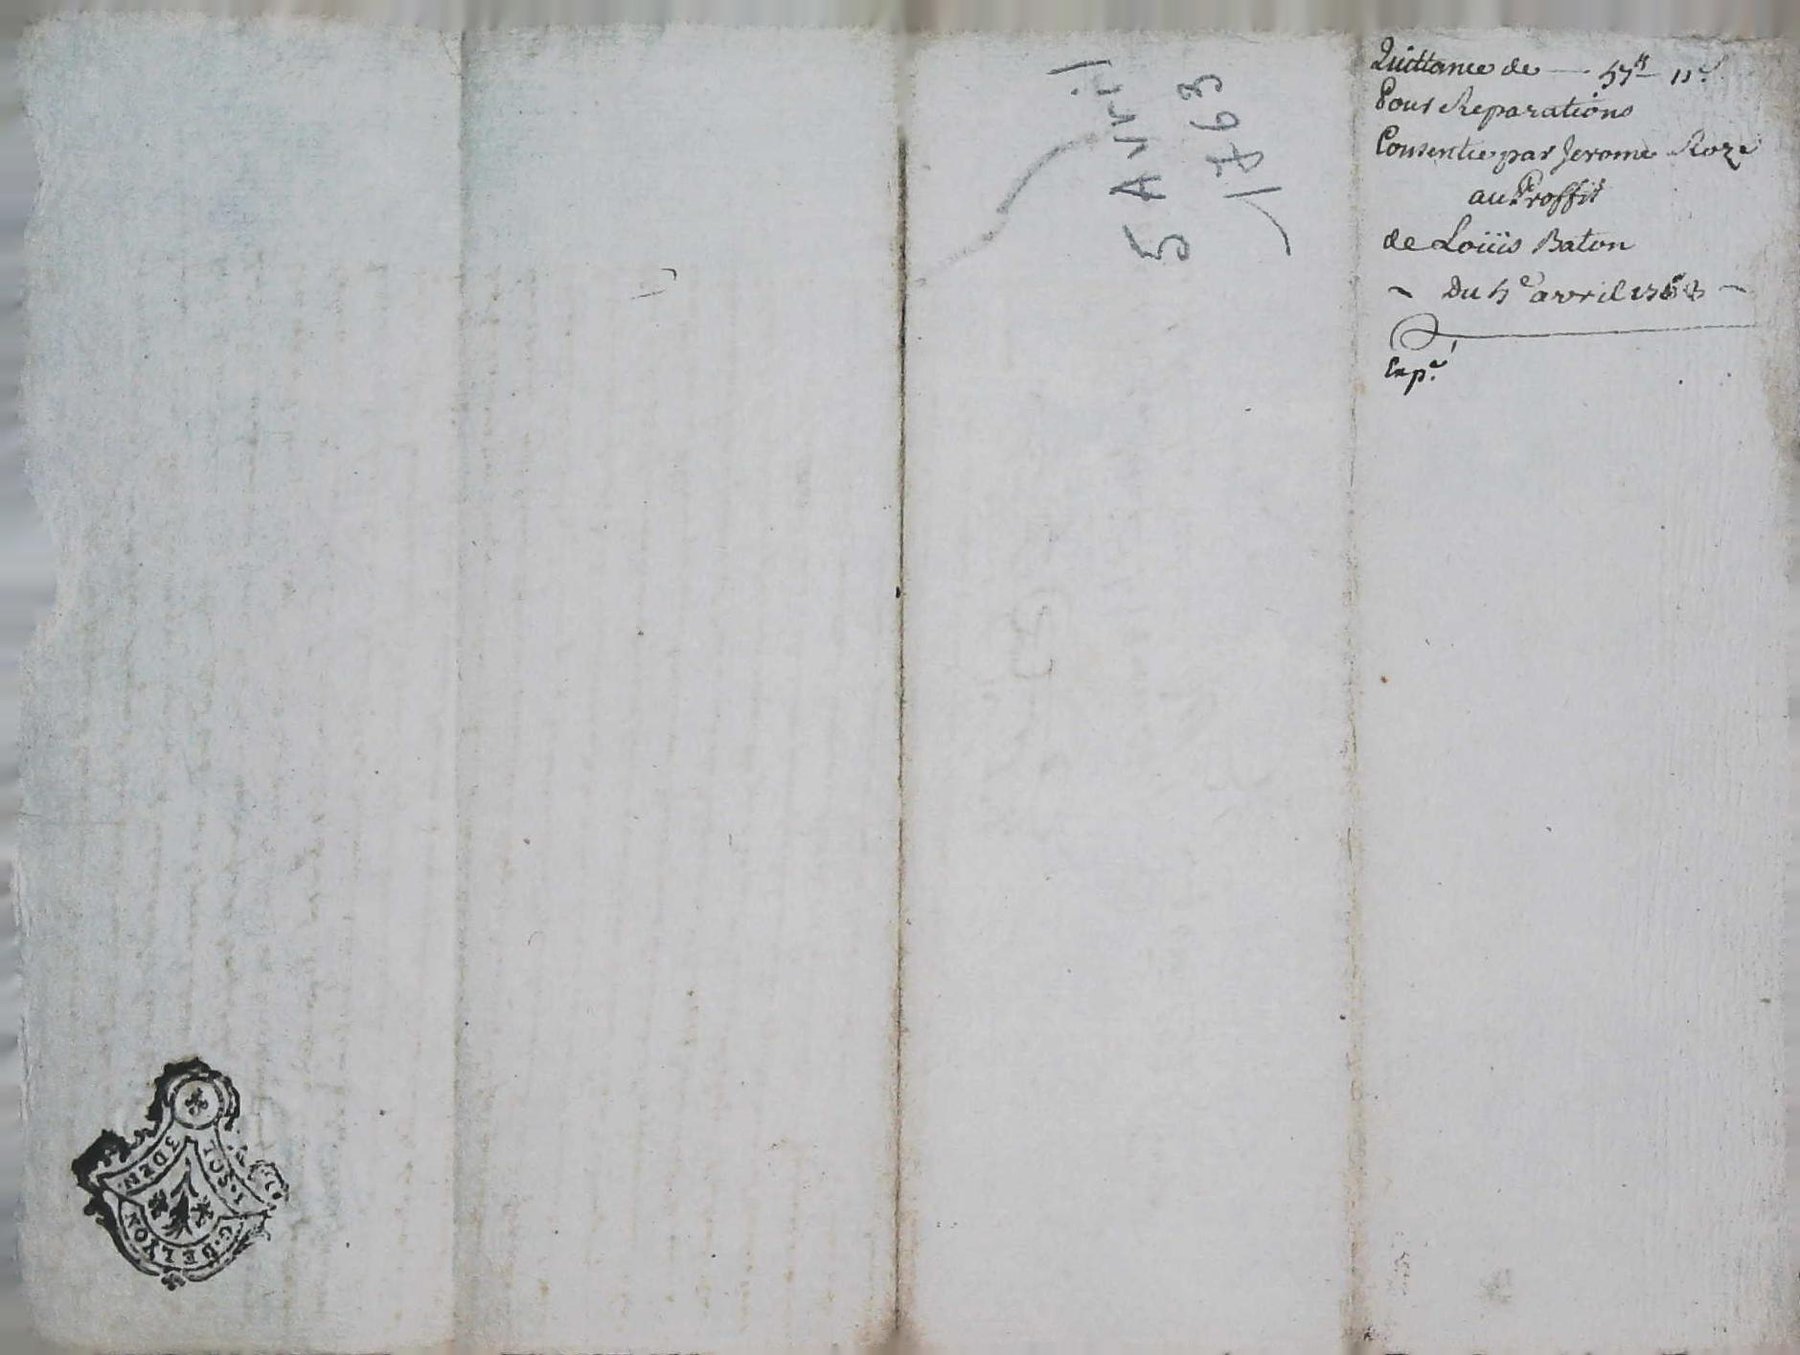 Quittance de — 57ᵗᵗ 11ˢ
Pour Reparations
Consentie par Jerome Roze
au Proffit
de Loüis Baton
~ Du 5ᵉ avril 1763 ~
Expᵉ.
5 Avril
1763
1. SOL
3 DEN.
G. DE LYON